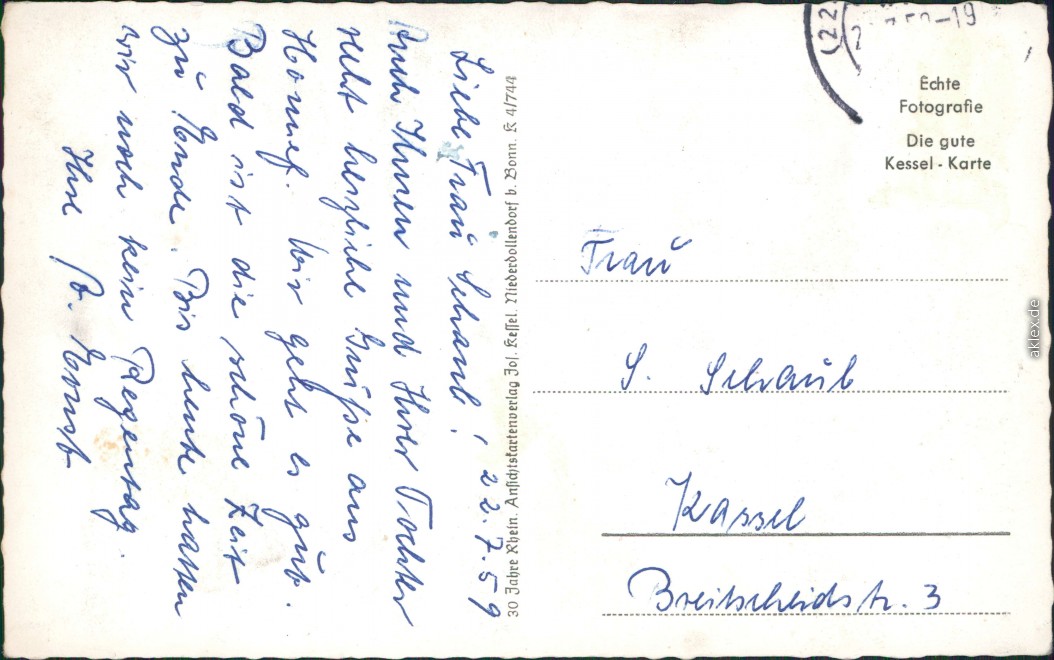 Liebe Frau Schaub! 22.7.59
Auch Ihnen und Ihrer Tochter
recht herzliche Grüße aus
Honnef. Mir geht es gut.
Bald ist die schöne Zeit
zu Ende. Bis heute hatten
wir noch kein Regentag.
Ihre B. Ernst
30 Jahre Rhein. Ansichtskartenverlag Jos. Kessel, Niederdollendorf b. Bonn. K 4/744
(22
-19
Echte
Fotografie
Die gute
Kessel - Karte
Frau
S. Schaub
Kassel
Breitscheidstr. 3
aklex.de